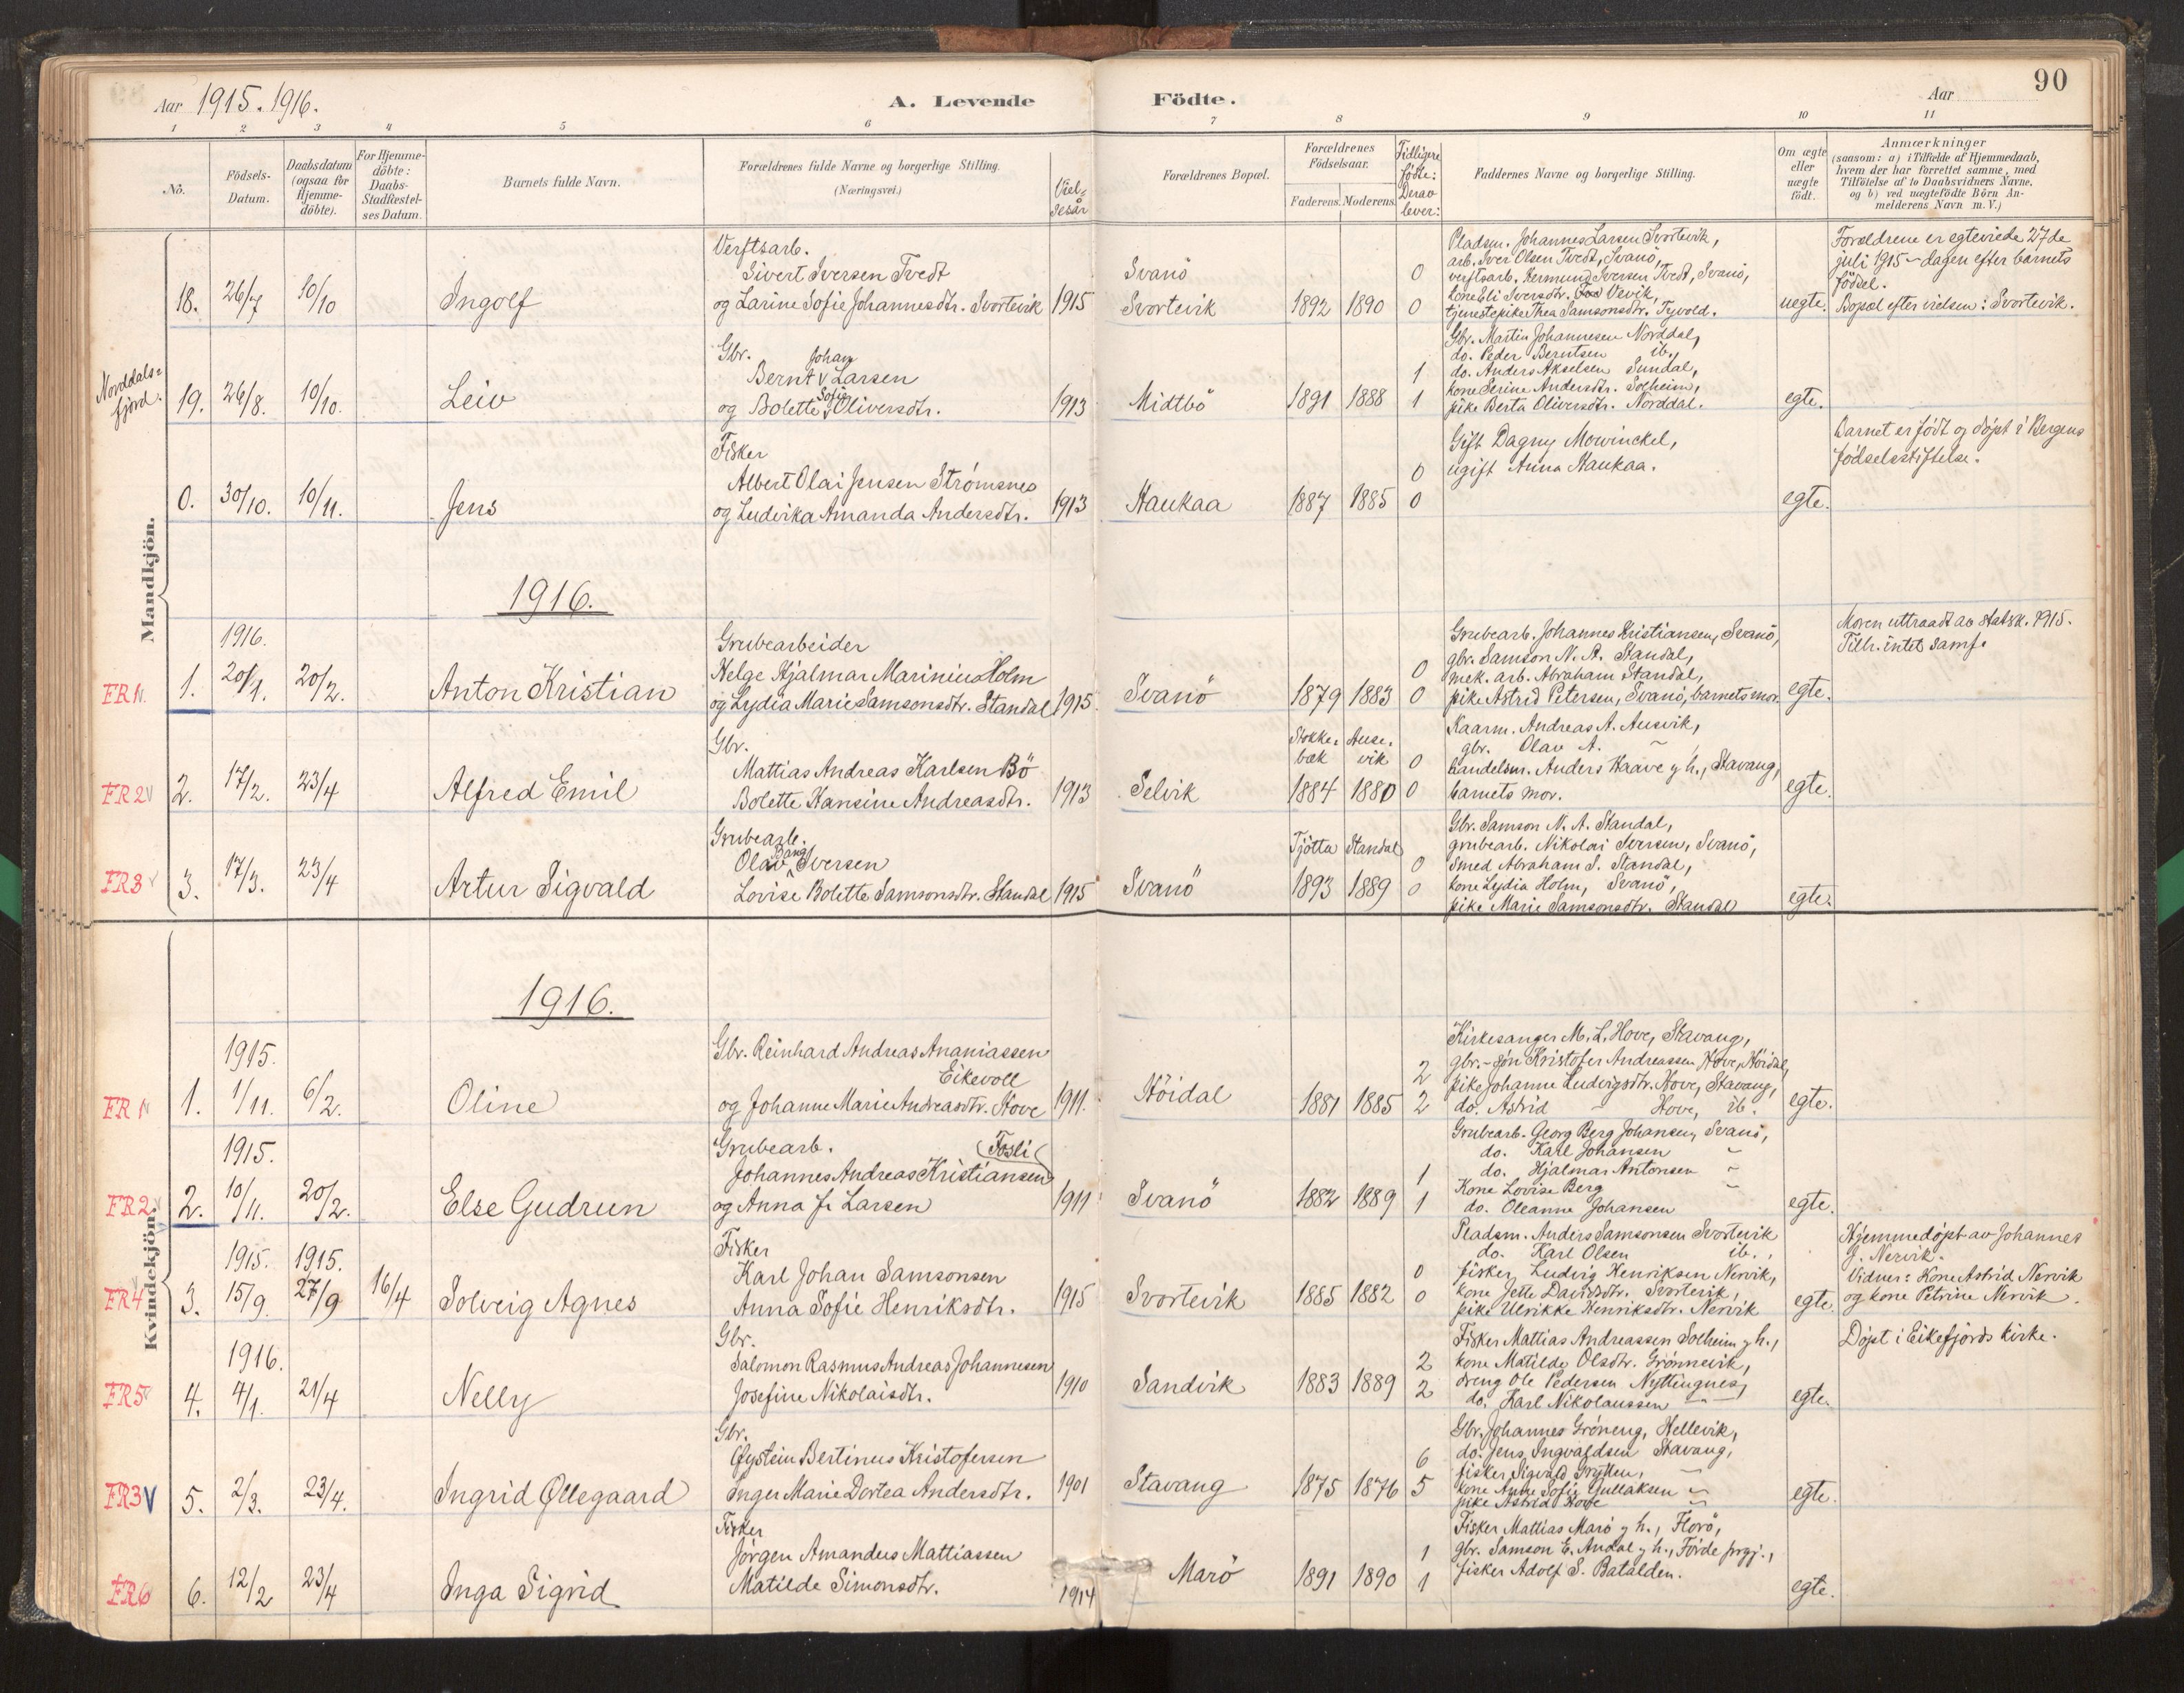 90
Aar 1915. 1916.
A. Levende Födte.
Aar
1 2 3 4 5 6 7 8 9 10 11
No.
Födsels-
Datum.
Daabsdatum
(ogsaa for
Hjemme-
döbte).
For Hjemme-
döbte:
Daabs-
Stadfæstel-
ses Datum.
Barnets fulde Navn.
Forældrenes fulde Navne og borgerlige Stilling.
(Næringsvei.)
Viel-
sesår
Forældrenes Bopæl.
Forældrenes
Födselsaar.
Faderens. Moderens.
Tidligere
fødte:
Derav
lever:
Faddernes Navne og borgerlige Stilling.
Om ægte
eller
uægte
födt.
Anmærkninger
(saasom: a) i Tilfælde af Hjemmedaab,
hvem der har forrettet samme, med
Tilföielse af to Daabsvidners Navne,
og b) ved uægtefödte Börn An-
melderens Navn m. V.)
Mandkjön.
18. 26/7 10/10 Ingolf
Verftsarb.
Sivert Iversen Tvedt
og Larine Sofie Johannesdtr. Svortevik 1915
Svanö
Svortevik 1892 1890
0
0
Pladsm. Johannes Larsen Svortevik,
arb. Iver Olsen Tvedt, Svanö,
verftsarb. Hermund Iversen Tvedt, Svanö,
kone Eli Iversdtr. Vevik,
tjenestepike Thea Samsonsdtr. Tyvold.
uegte.
Forældrene er egteviede 27de
juli 1915 - dagen efter barnets
födsel.
Bopæl efter vielsen: Svortevik.
Norddals=
fjord.
19. 26/8. 10/10. Leiv
Gbr.
Johan
Bernt v Larsen
Sofie
og Bolette v Oliversdtr. 1913
Midtbö 1891 1888
1
1
Gbr. Martin Johannesen Norddal,
do. Peder Berntsen ib.,
do. Anders Akselsen Sundal,
kone Serine Andersdtr. Solheim,
pike Berta Oliversdtr. Norddal.
egte.
0. 30/10. 10/11. Jens
Fisker
Albert Olai Jensen Strømsnes
og Ludvika Amanda Andersdtr. 1913
Haukaa 1887 1885
0
0
Gift Dagny Mowinckel,
ugift Anna Haukaa.
egte.
Barnet er født og døpt i Bergens
fødselsstiftelse.
1916.
1916.
FR1. 1. 20/1. 20/2. Anton Kristian
Grubearbeider
Helge Hjalmar Marinius Holm
og Lydia Marie Samsonsdtr. Standal 1915.
Svanö 1879 1883
0
0
Grubearb. Johannes Kristiansen, Svanö,
gbr. Samson N. A. Standal,
mek. arb. Abraham Standal,
pike Astrid Petersen, Svanö, barnets mor.
egte.
Moren uttraadt av statsk. 1915.
Tilh. intet samf.
FR2 2. 17/2. 23/4 Alfred Emil
Gbr.
Mattias Andreas Karlsen Bö
Bolette Hansine Andreasdtr. 1913
Selvik
Stokke= Ause=
bæk vik
1884 1880
0
0
Kaarm. Andreas A. Ausvik,
gbr. Olav A. ~,
handelsm. Anders Haave g h., Stavang,
barnets mor.
egte.
FR3 3. 17/3. 23/4 Artur Sigvald
Grubearb.
Bang
Olav Iversen
Lovise Bolette Samsonsdtr. Standal 1915
Svanö
Tjötta Standal
1893 1889
0
0
Gbr. Samson N. A. Standal,
grubearb. Nikolai Iversen, Svanö,
smed Abraham S. Standal,
kone Lydia Holm, Svanö,
pike Marie Samsonsdtr. Standal
egte.
Kvindekjön.
1916.
1915.
FR1 1. 1/11. 6/2. Oline
Gbr. Reinhard Andreas Ananiassen
Eikevoll
og Johanne Marie Andreasdtr. Hove 1911.
Höidal 1881 1885
2
2
Kirkesanger M. L. Hove, Stavang,
gbr.-søn Kristofer Andreassen Hove, Höidal,
pike Johanne Ludvigsdtr. Hove, Stavang,
do. Astrid ~ Hove, ib.
egte.
1915.
FR2 2. 10/11. 20/2. Else Gudrun
Grubearb. (Fosli)
Johannes Andreas Kristiansen
og Anna J. Larsen 1911
Svanö 1882 1889
1
1
Grubearb. Georg Berg Johansen, Svanö,
do. Karl Johansen ~
do. Hjalmar Antonsen ~
Kone Lovise Berg ~
do. Oleanne Johansen
egte.
1915. 1915.
FR4 3. 15/9. 27/9 16/4 Solveig Agnes
Fisker
Karl Johan Samsonsen
Anna Sofie Henriksdtr. 1915
Svortevik 1885 1882
0
0
Pladsm. Anders Samsonsen Svortevik
do. Karl Olsen ib.,
fisker Ludvig Henriksen Nervik,
kone Jette Davidsdtr. Svortevik,
pike Ulrikke Henriksdtr. Nervik
egte.
Hjemmedøpt av Johannes
J. Nervik.
Vidner: Kone Astrid Nervik
og kone Petrine Nervik.
1916.
FR5 4. 4/1. 21/4 Nelly
Gbr.
Salomon Rasmus Andreas Johannesen
Josefine Nikolaisdtr. 1910
Sandvik 1883 1889
2
2
Fisker Mattias Andreassen Solheim g h.,
kone Matilde Olsdtr. Grönnevik,
dreng Ole Pedersen Nyttingnes,
do. Karl Nikolaussen ~
egte.
Døpt i Eikefjords kirke.
FR3 V 5. 2/3. 23/4. Ingrid Øllegaard
Gbr.
Øystein Bertinus Kristofersen
Inger Marie Dortea Andersdtr. 1901
Stavang 1875 1876
6
5
Gbr. Johannes Gröneng, Hellevik,
do. Jens Ingvaldsen Stavang,
fisker Sigvald Grytten, ~
kone Anne Sofie Gullaksen ~
pike Astrid Hove ~
egte.
FR6 6. 12/2 23/4 Inga Sigrid
Fisker
Jörgen Amandus Mattiassen
Matilde Simonsdtr. 1914
Marö 1891 1890
1
1
Fisker Mattias Marö g h., Florö,
gbr. Samson E. Andal g h., Förde prgj.,
fisker Adolf S. Batalden.
egte.